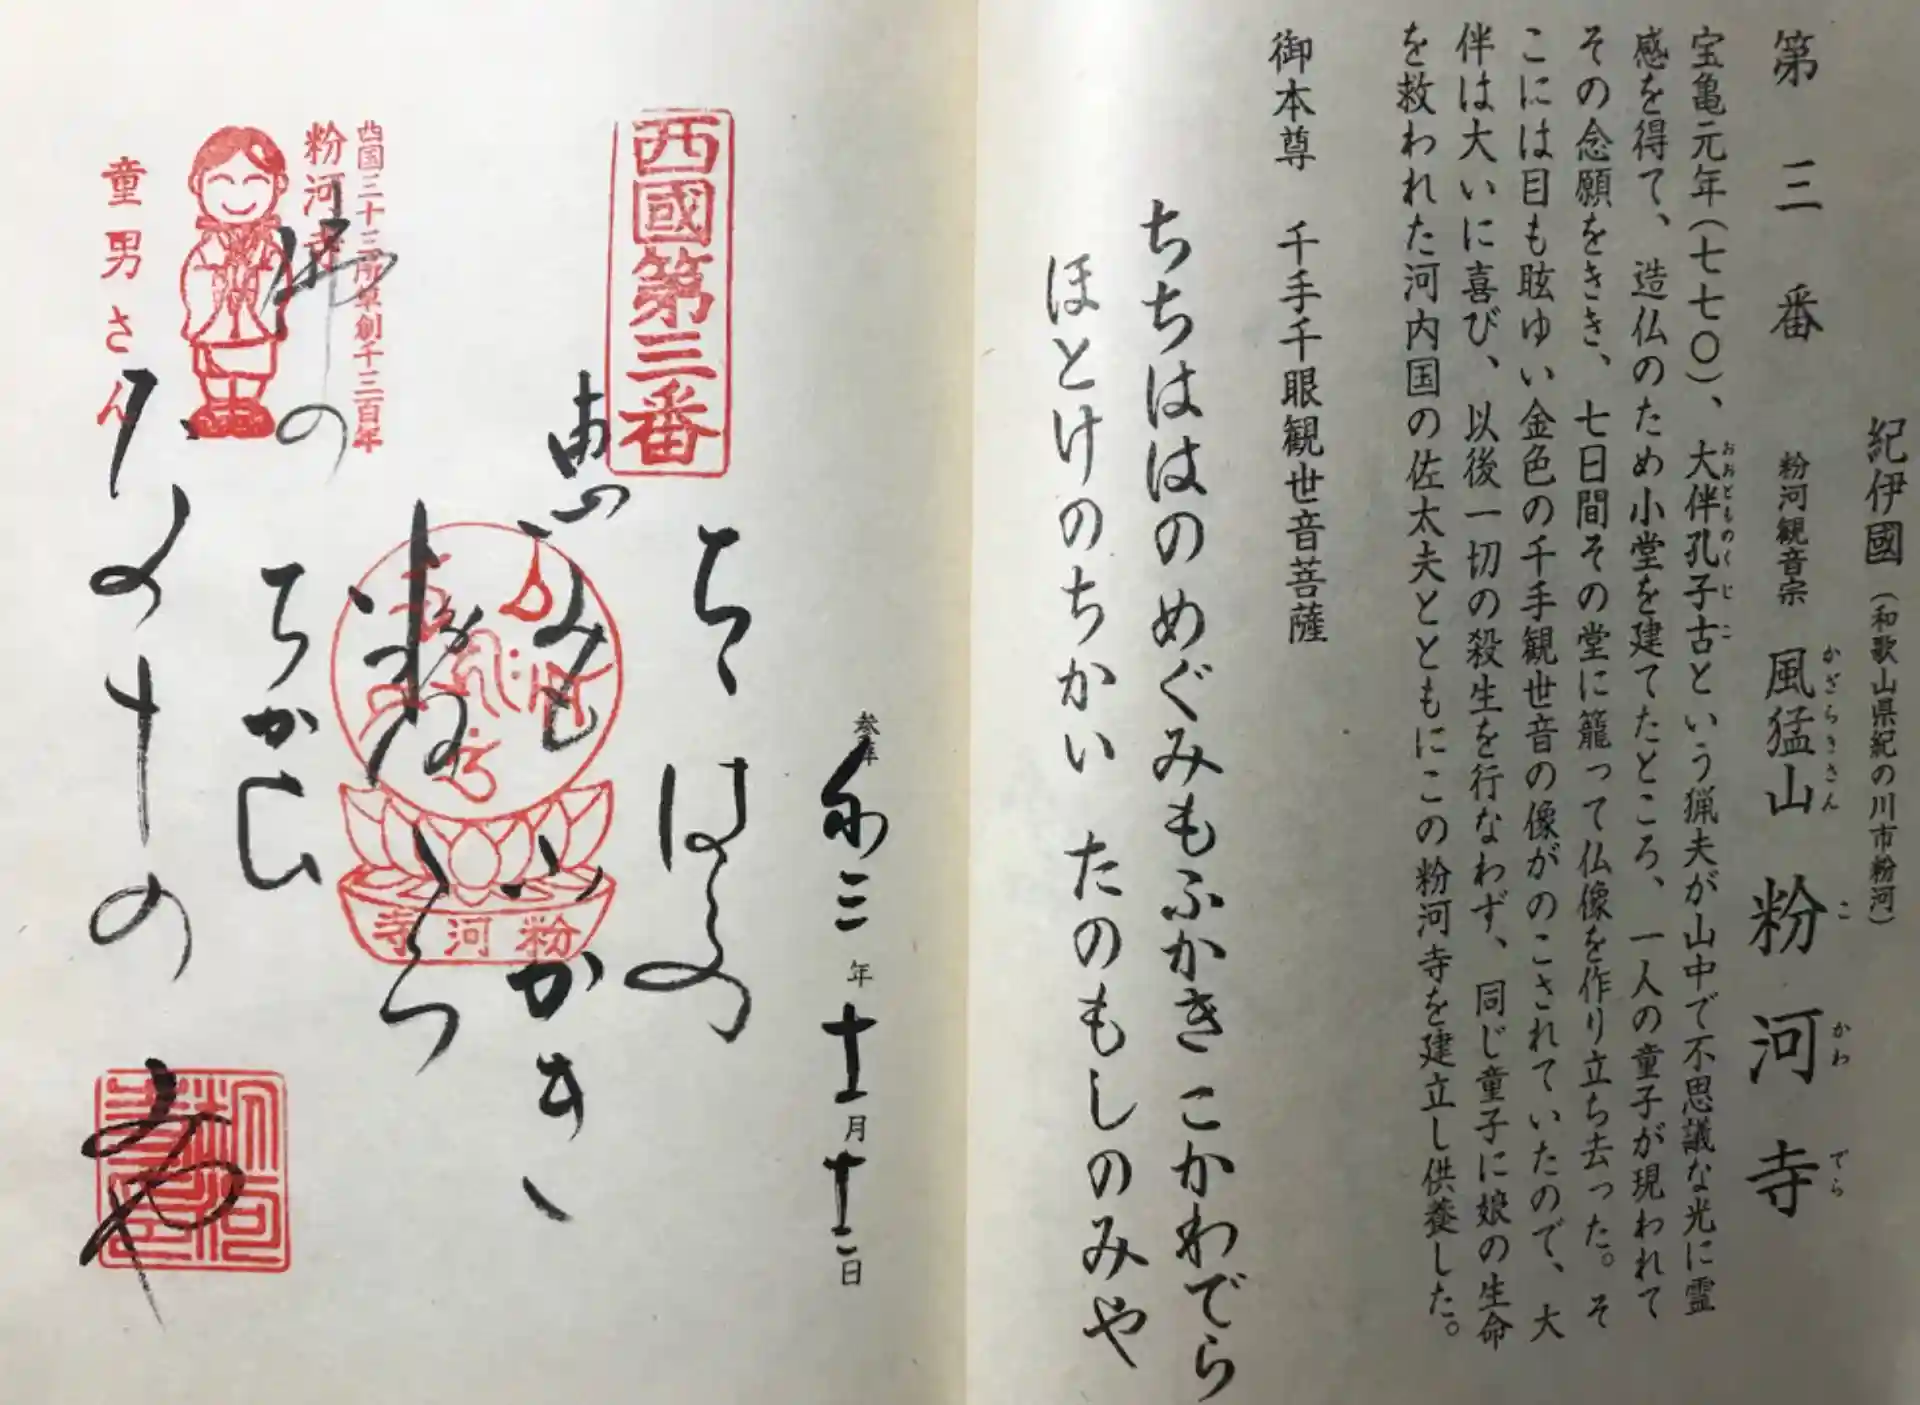 紀伊國（和歌山県紀の川市粉河）
第三番 粉河観音宗 風猛山 粉河寺
かざらきさん こ かわ でら
宝亀元年（七七〇）、大伴孔子古という猟夫が山中で不思議な光に霊
おおとものくじこ
感を得て、造仏のため小堂を建てたところ、一人の童子が現われて
その念願をきき、七日間その堂に籠って仏像を作り立ち去った。そ
こには目も眩ゆい金色の千手観世音の像がのこされていたので、大
伴は大いに喜び、以後一切の殺生を行なわず、同じ童子に娘の生命
を救われた河内国の佐太夫とともにこの粉河寺を建立し供養した。
御本尊 千手千眼観世音菩薩
ちちははのめぐみもふかき こかわでら
ほとけのちかい たのもしのみや
参年
三年十二月十二日
西國第三番
ちゝはゝの
恵みも
ふかき
粉河
寺河粉
西国三十三所草創千三百年
粉河寺
佛の
ちかひ
童男さん
たのもしの
みや